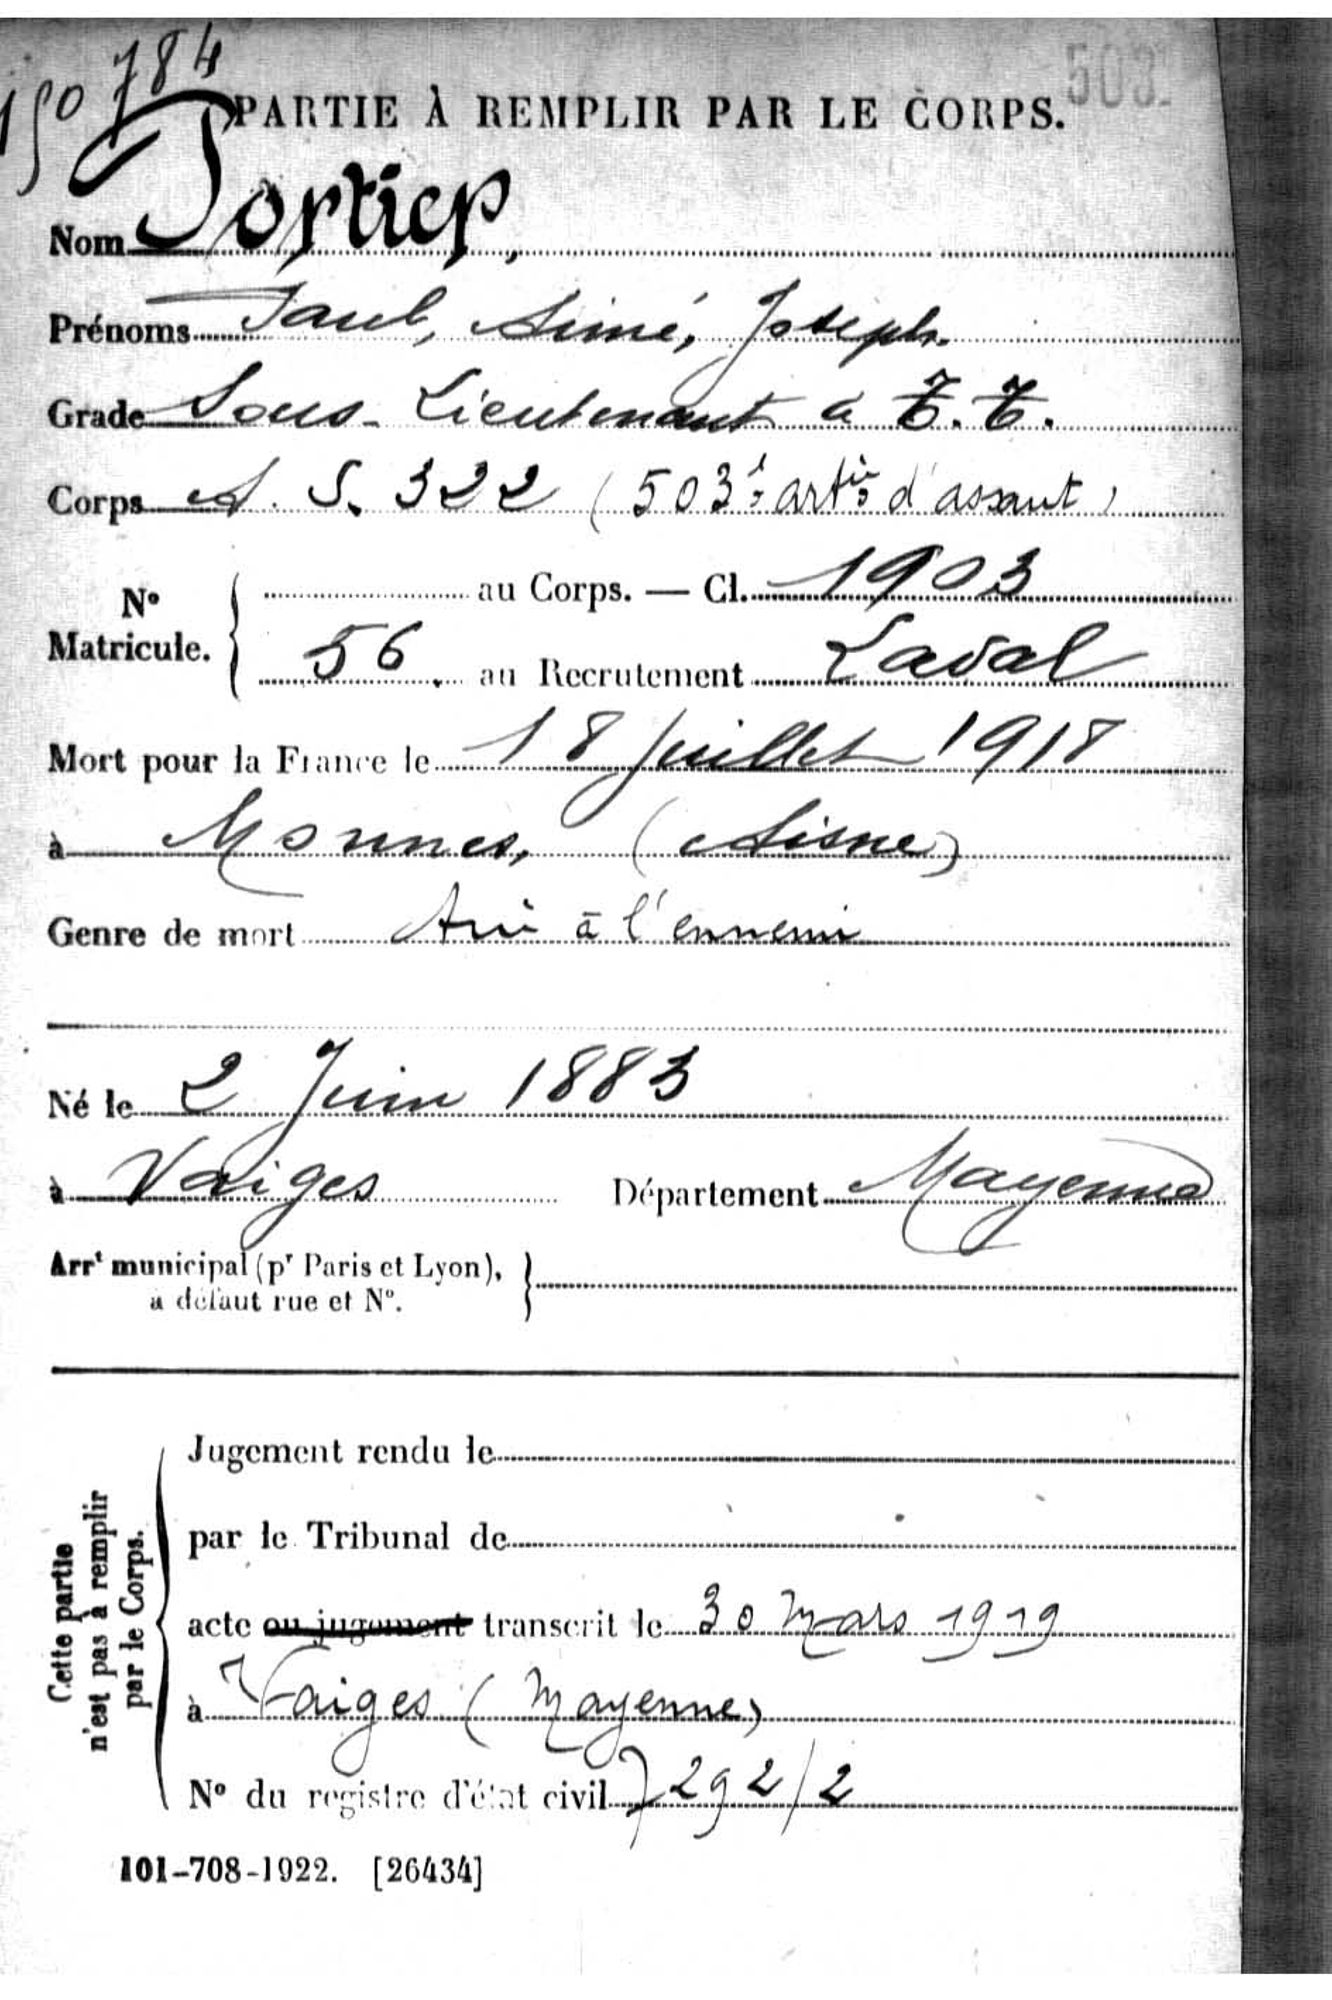 150784
503
PARTIE À REMPLIR PAR LE CORPS.
Nom Portier,
Prénoms Paul, Aimé, Joseph.
Grade Sous-Lieutenant à T.T.
Corps A. S. 322 (503e artie d'assaut)
No Matricule. { au Corps. — Cl. 1903
56. au Recrutement Laval
Mort pour la France le 18 Juillet 1918
à Monnes, (Aisne)
Genre de mort Tué à l'ennemi
Né le 2 Juin 1883
à Vaiges Département Mayenne
Arrt municipal (pr Paris et Lyon), }
à défaut rue et No.
Cette partie
n'est pas à remplir
par le Corps.
Jugement rendu le
par le Tribunal de
acte ou jugement transcrit le 30 Mars 1919
à Vaiges (Mayenne)
No du registre d'état civil 7292/2
101-708-1922. [26434]